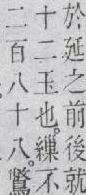 於延之前後就
十二玉也。繅不
二百八十八。鷩